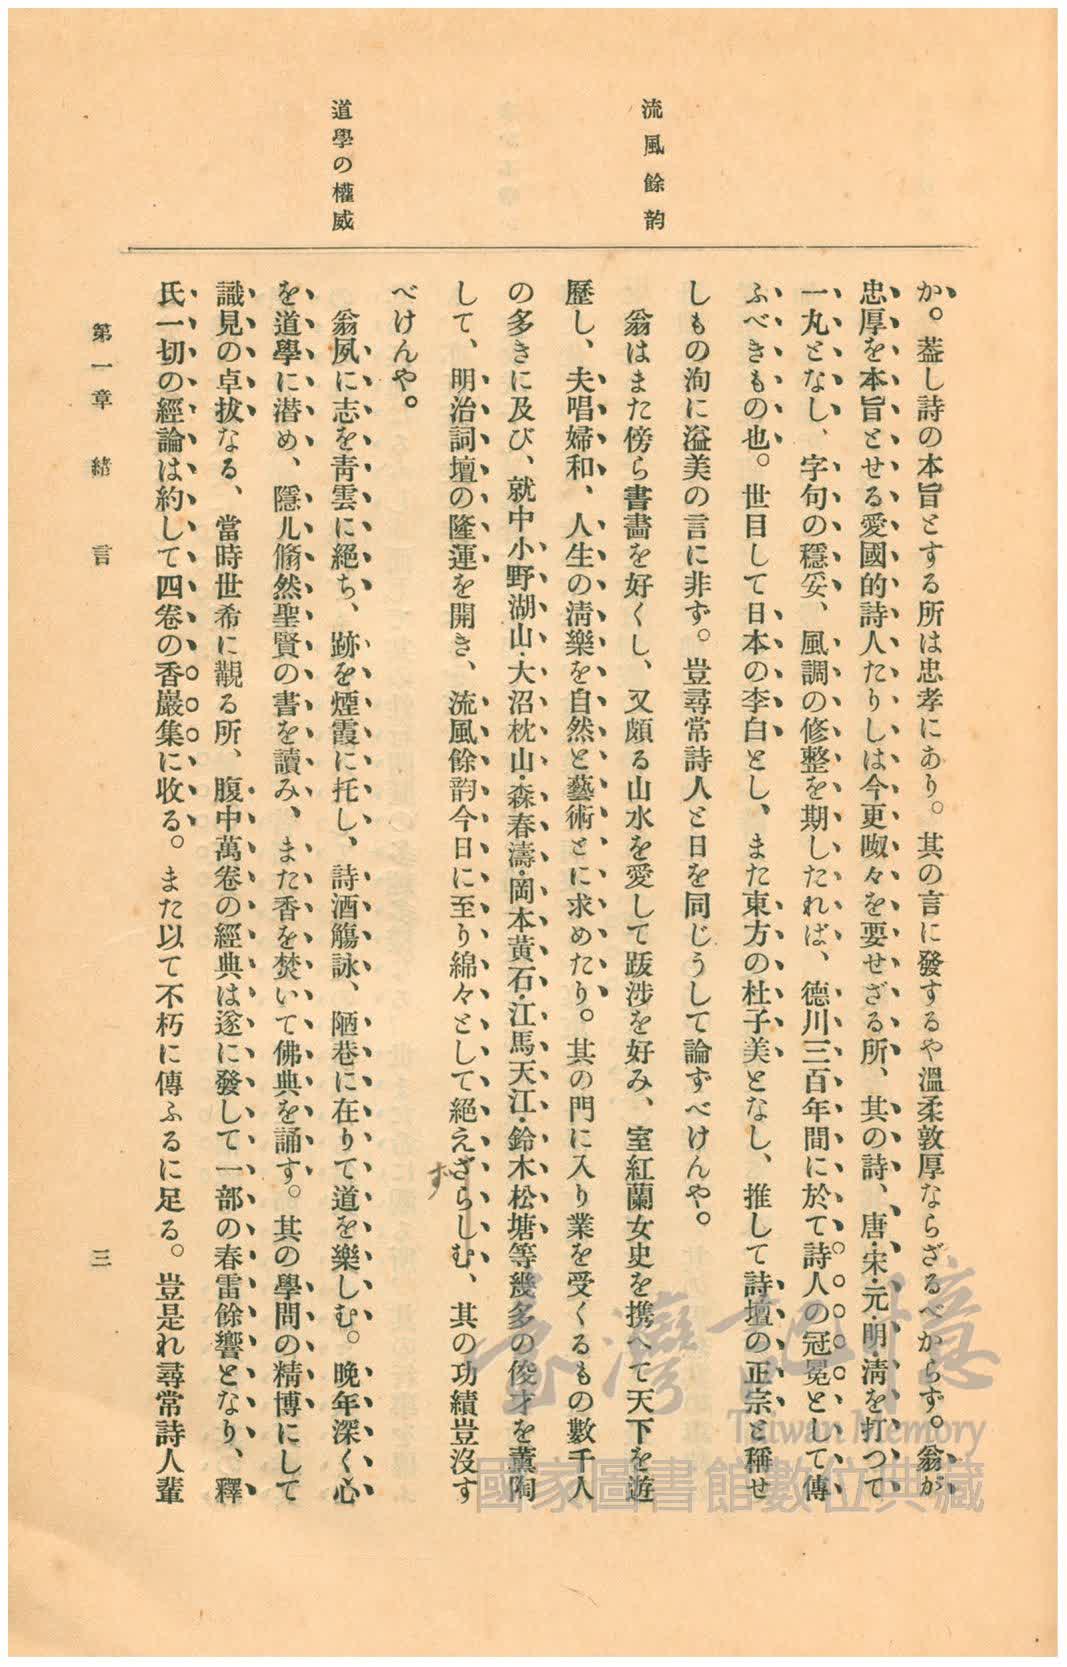 流風餘韵
道學の權威
か。葢し詩の本旨とする所は忠孝にあり。其の言に發するや溫柔敦厚ならざるべからず。翁が
忠厚を本旨とせる愛國的詩人たりしは今更呶々を要せざる所、其の詩、唐・宋・元・明・淸を打つて
一丸となし、字句の穩妥、風調の修整を期したれば、德川三百年間に於て詩人の冠冕として傳
ふべきもの也。世目して日本の李白とし、また東方の杜子美となし、推して詩壇の正宗と稱せ
しもの洵に溢美の言に非ず。豈尋常詩人と日を同じうして論ずべけんや。
翁はまた傍ら書畵を好くし、又頗る山水を愛して跋涉を好み、室紅蘭女史を携へて天下を遊
歷し、夫唱婦和、人生の淸樂を自然と藝術とに求めたり。其の門に入り業を受くるもの數千人
の多きに及び、就中小野湖山・大沼枕山・森春濤・岡本黃石・江馬天江・鈴木松塘等幾多の俊才を薰陶
して、明治詞壇の隆運を開き、流風餘韵今日に至り綿々として絕えざらしむ、其の功績豈沒す
べけんや。
翁夙に志を靑雲に絕ち、跡を煙霞に托し、詩酒觴詠、陋巷に在りて道を樂しむ。晩年深く心
を道學に潜め、隱几翛然聖賢の書を讀み、また香を焚いて佛典を誦す。其の學問の精博にして
識見の卓拔なる、當時世希に覯る所、腹中萬卷の經典は遂に發して一部の春雷餘響となり、釋
氏一切の經論は約して四卷の香巖集に收る。また以て不朽に傳ふるに足る。豈是れ尋常詩人輩
第一章 緖言
三
臺灣記憶
Taiwan Memory
國家圖書館數位典藏